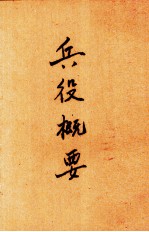 兵役概要